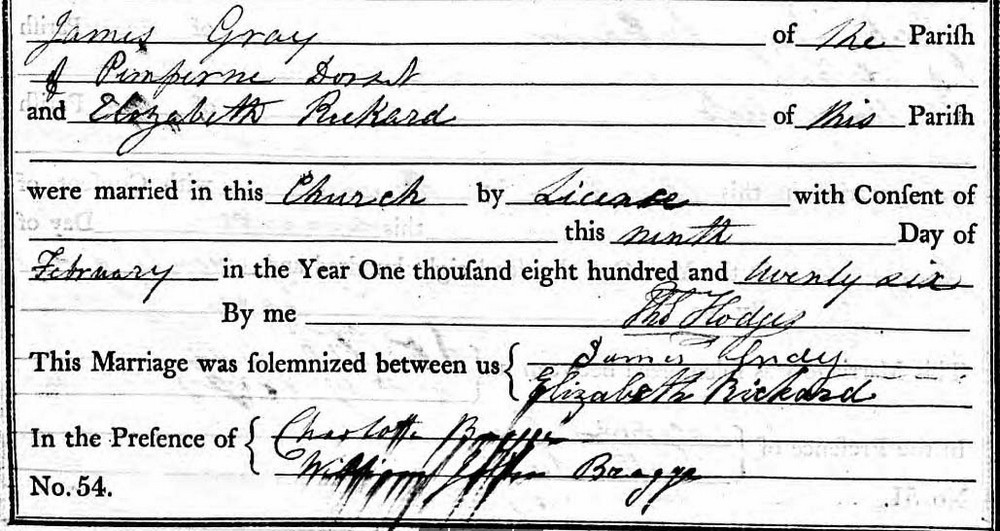 James Gray of the Pariſh
of Pimperne Dorset
and Elizabeth Rickard of this Pariſh
were married in this Church by License with Conſent of
this ninth Day of
February in the Year One thouſand eight hundred and twenty six
By me Thos Hodges
This Marriage was ſolemnized between us { James Gray
Elizabeth Rickard
In the Preſence of { Charlotte Bragge
William Bragge
No. 54.